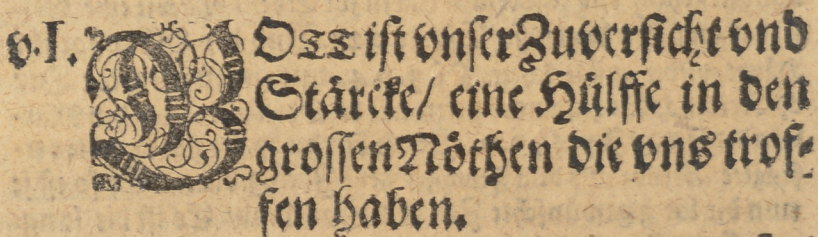 v.I. GOTT ist vnser Zuversicht vnd
Stärcke/ eine Hülffe in den
grossen Nöthen die vns trof-
fen haben.